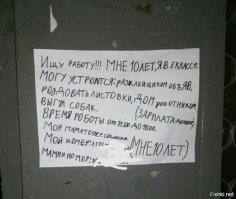 ИЩУ РАБОТУ!!! МНЕ 10 ЛЕТ, Я В 5 КЛАССЕ
МОГУ УСТРОИТСЯ: РАЗКЛЕЙЩИКОМ ОБЪЯВ,
РОЗДОВАТЬ ЛИСТОВКИ, ДОМ РОБОТНИКОМ
ВЫГУЛ СОБАК. (ЗАРПЛАТА
ВРЕМЯ РОБОТЫ ОТ ДО
МОЯ МАМА ТОЖЕ СОГЛАСНА
МОЙ НОМЕР: (МНЕ 10 ЛЕТ)
МАМИН НОМЕР:
Fishki.net